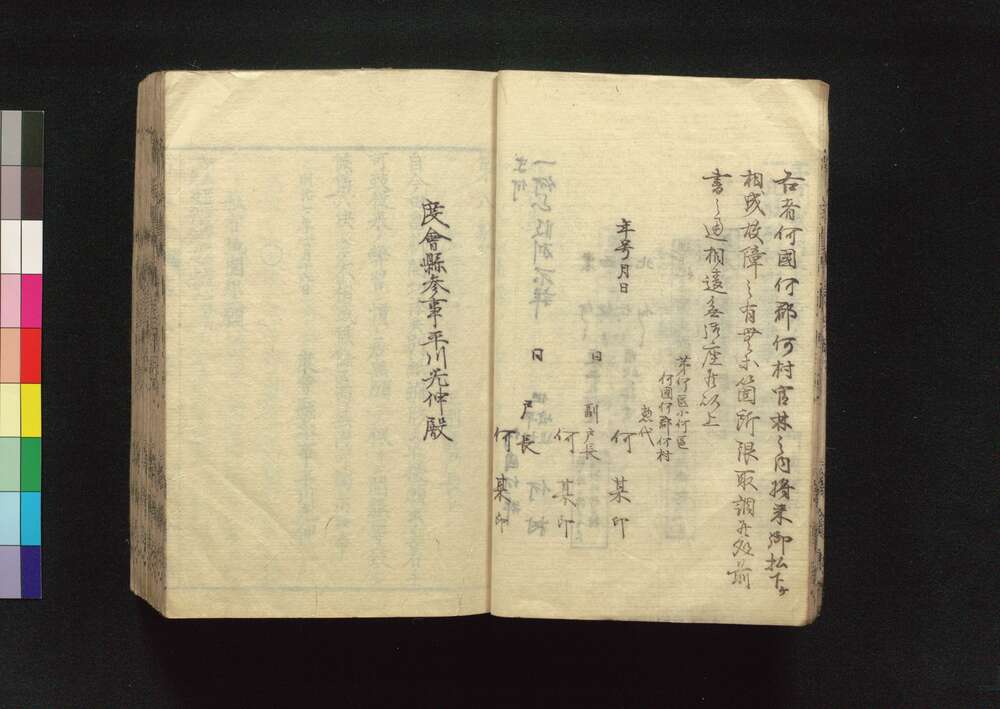 右者何國何郡何村官林之内将来御払下ケ
相成故障之有無等箇所限取調候処前
書之通相違無御座候以上
第何区小何区
何國何郡何村
年号月日
惣代
何某印
日
副戸長
何某印
日
戸長
何某印
度會縣参事平川光仲殿